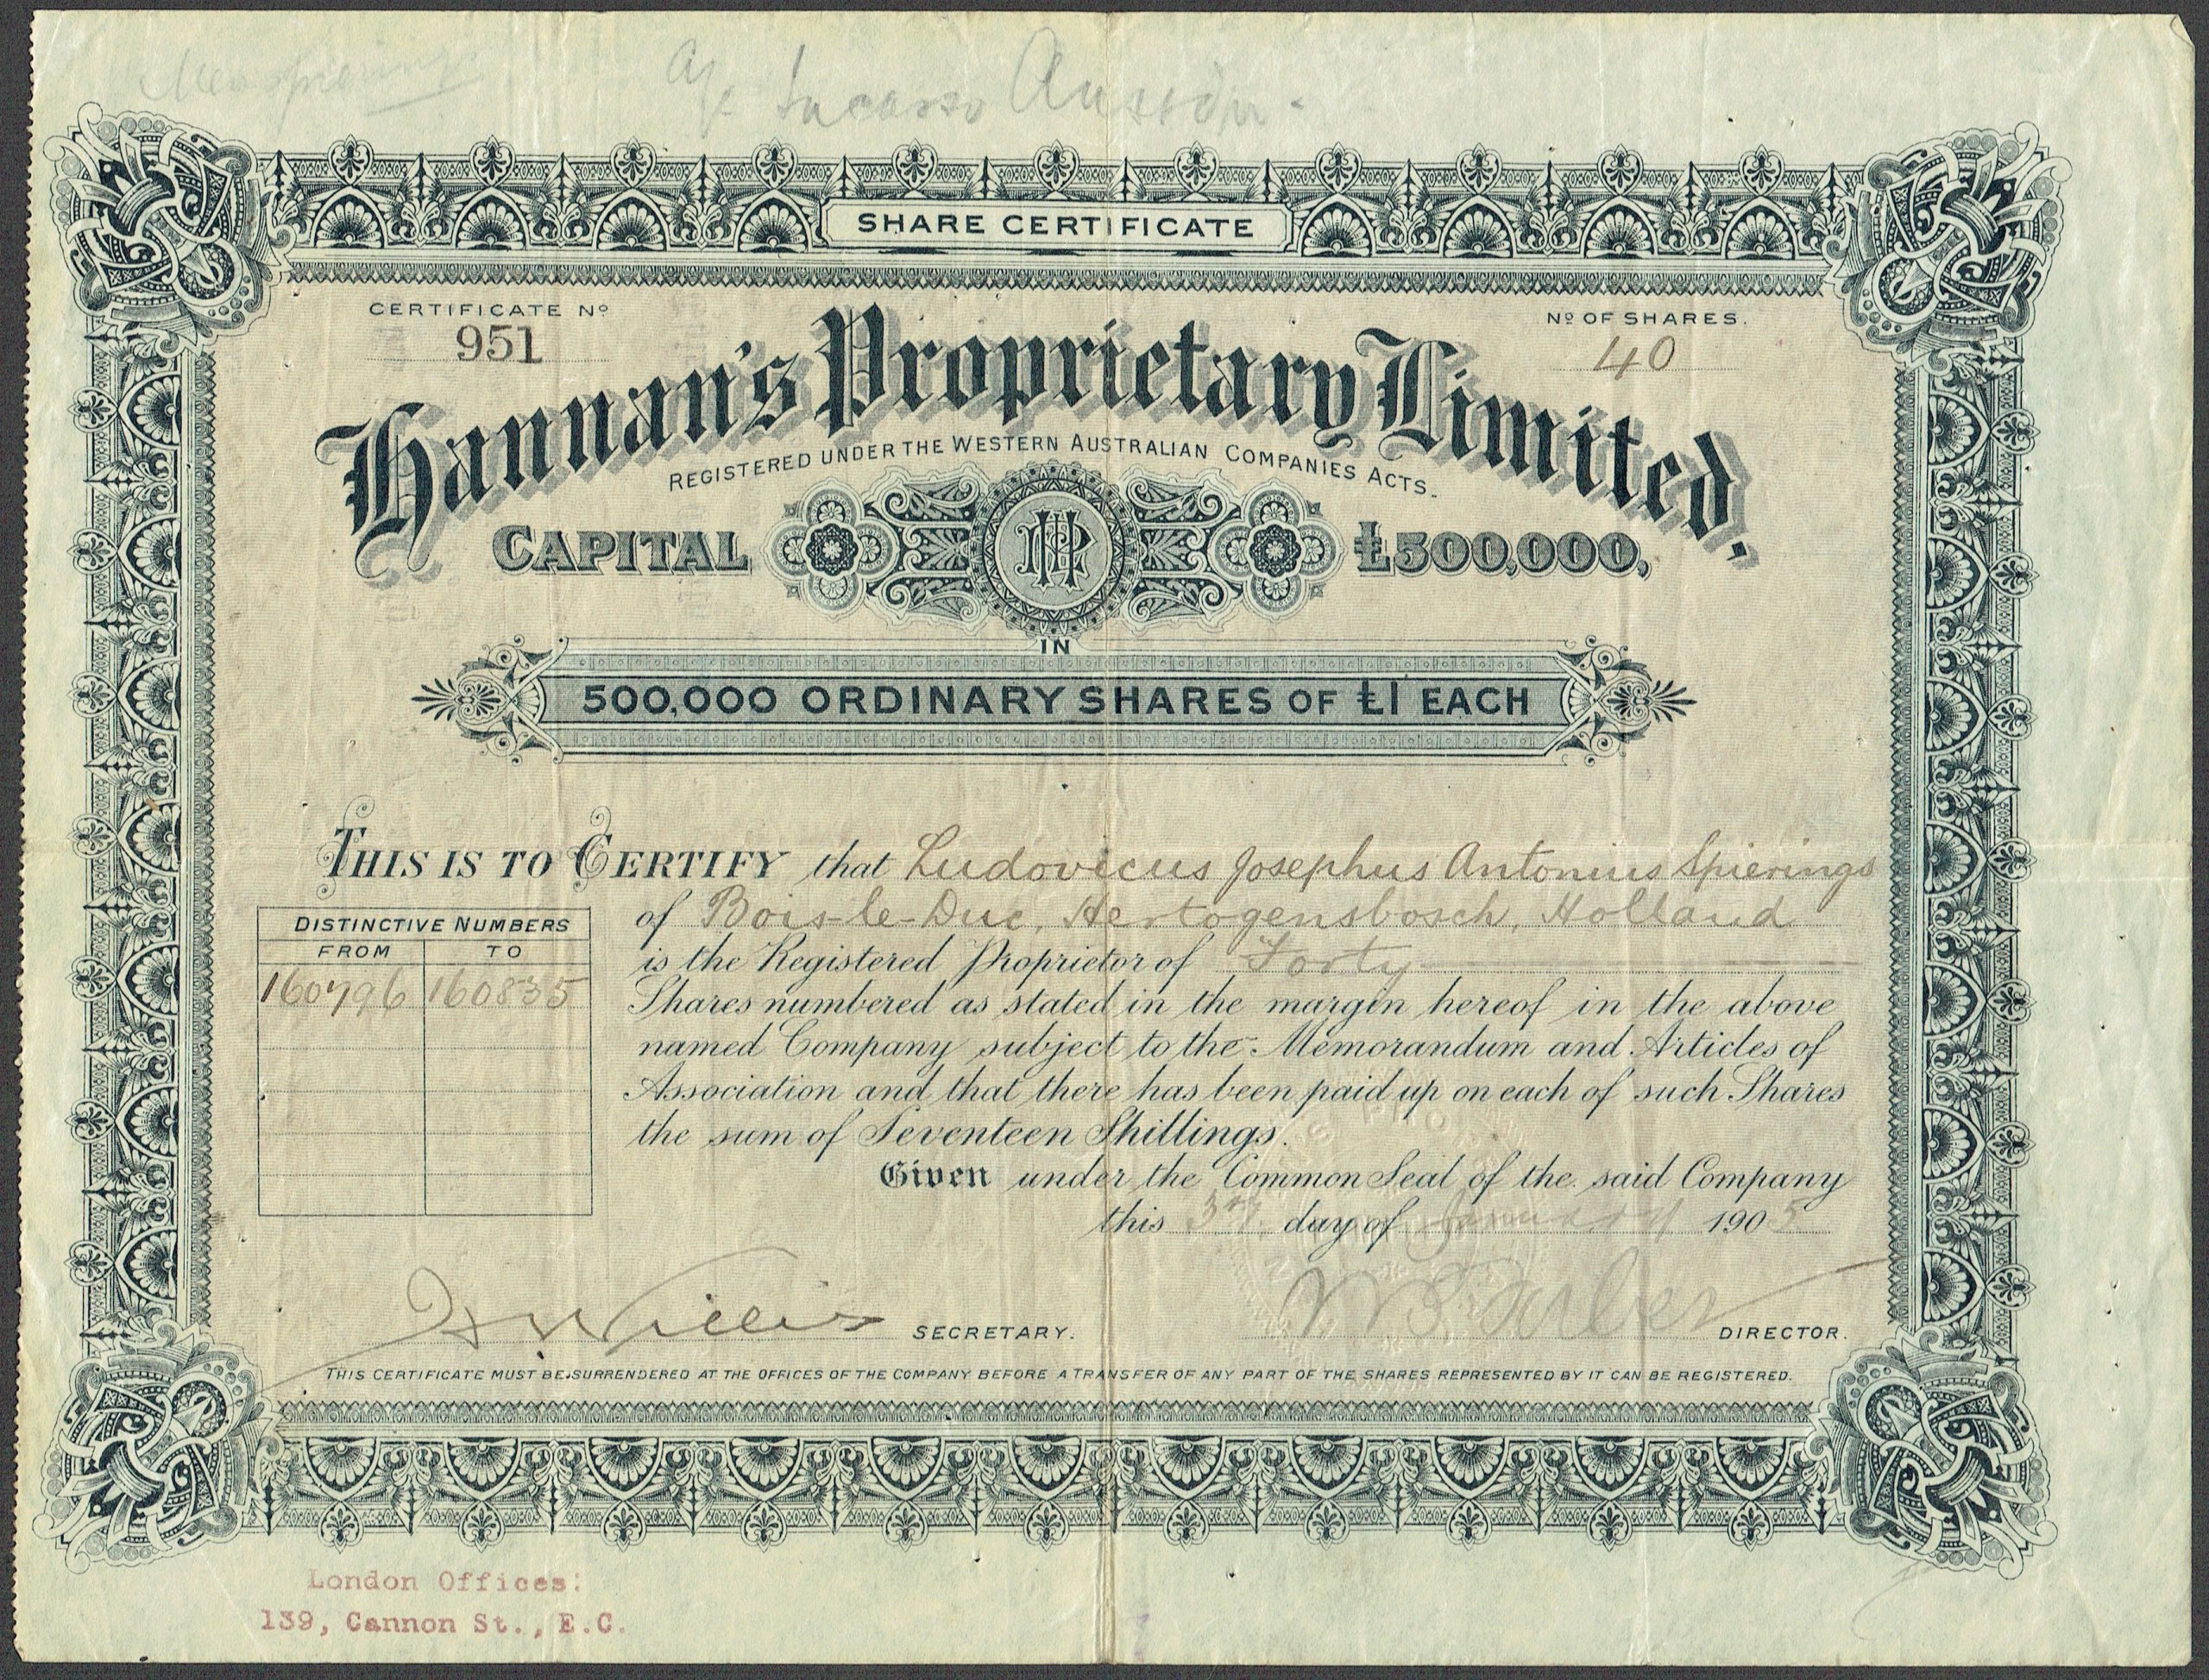 SHARE CERTIFICATE
CERTIFICATE Nº
951
Nº OF SHARES.
40
Hannan's Proprietary Limited,
REGISTERED UNDER THE WESTERN AUSTRALIAN COMPANIES ACTS.
CAPITAL HP £500,000,
IN
500,000 ORDINARY SHARES OF £1 EACH
THIS IS TO CERTIFY that Ludovicus Josephus Antonius Spierings
of Bois-le-Duc, Hertogensbosch, Holland
is the Registered Proprietor of Forty
Shares numbered as stated in the margin hereof in the above
named Company subject to the Memorandum and Articles of
Association and that there has been paid up on each of such Shares
the sum of Seventeen Shillings.
DISTINCTIVE NUMBERS
FROM TO
160796 160835
Given under the Common Seal of the said Company
this 3rd day of January 1905
SECRETARY.
DIRECTOR.
THIS CERTIFICATE MUST BE SURRENDERED AT THE OFFICES OF THE COMPANY BEFORE A TRANSFER OF ANY PART OF THE SHARES REPRESENTED BY IT CAN BE REGISTERED.
London Offices:
139, Cannon St., E.C.